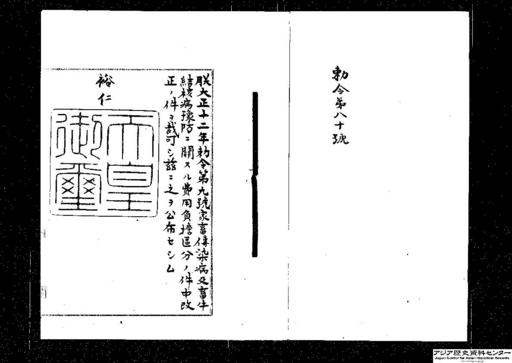 勅令第八十號
朕大正十二年勅令第九號家畜傳染病及畜牛
結核病豫防ニ關スル費用負擔區分ノ件中改
正ノ件ヲ裁可シ茲ニ之ヲ公布セシム
裕仁
天皇
御璽
アジア歴史資料センター
Japan Center for Asian Historical Records